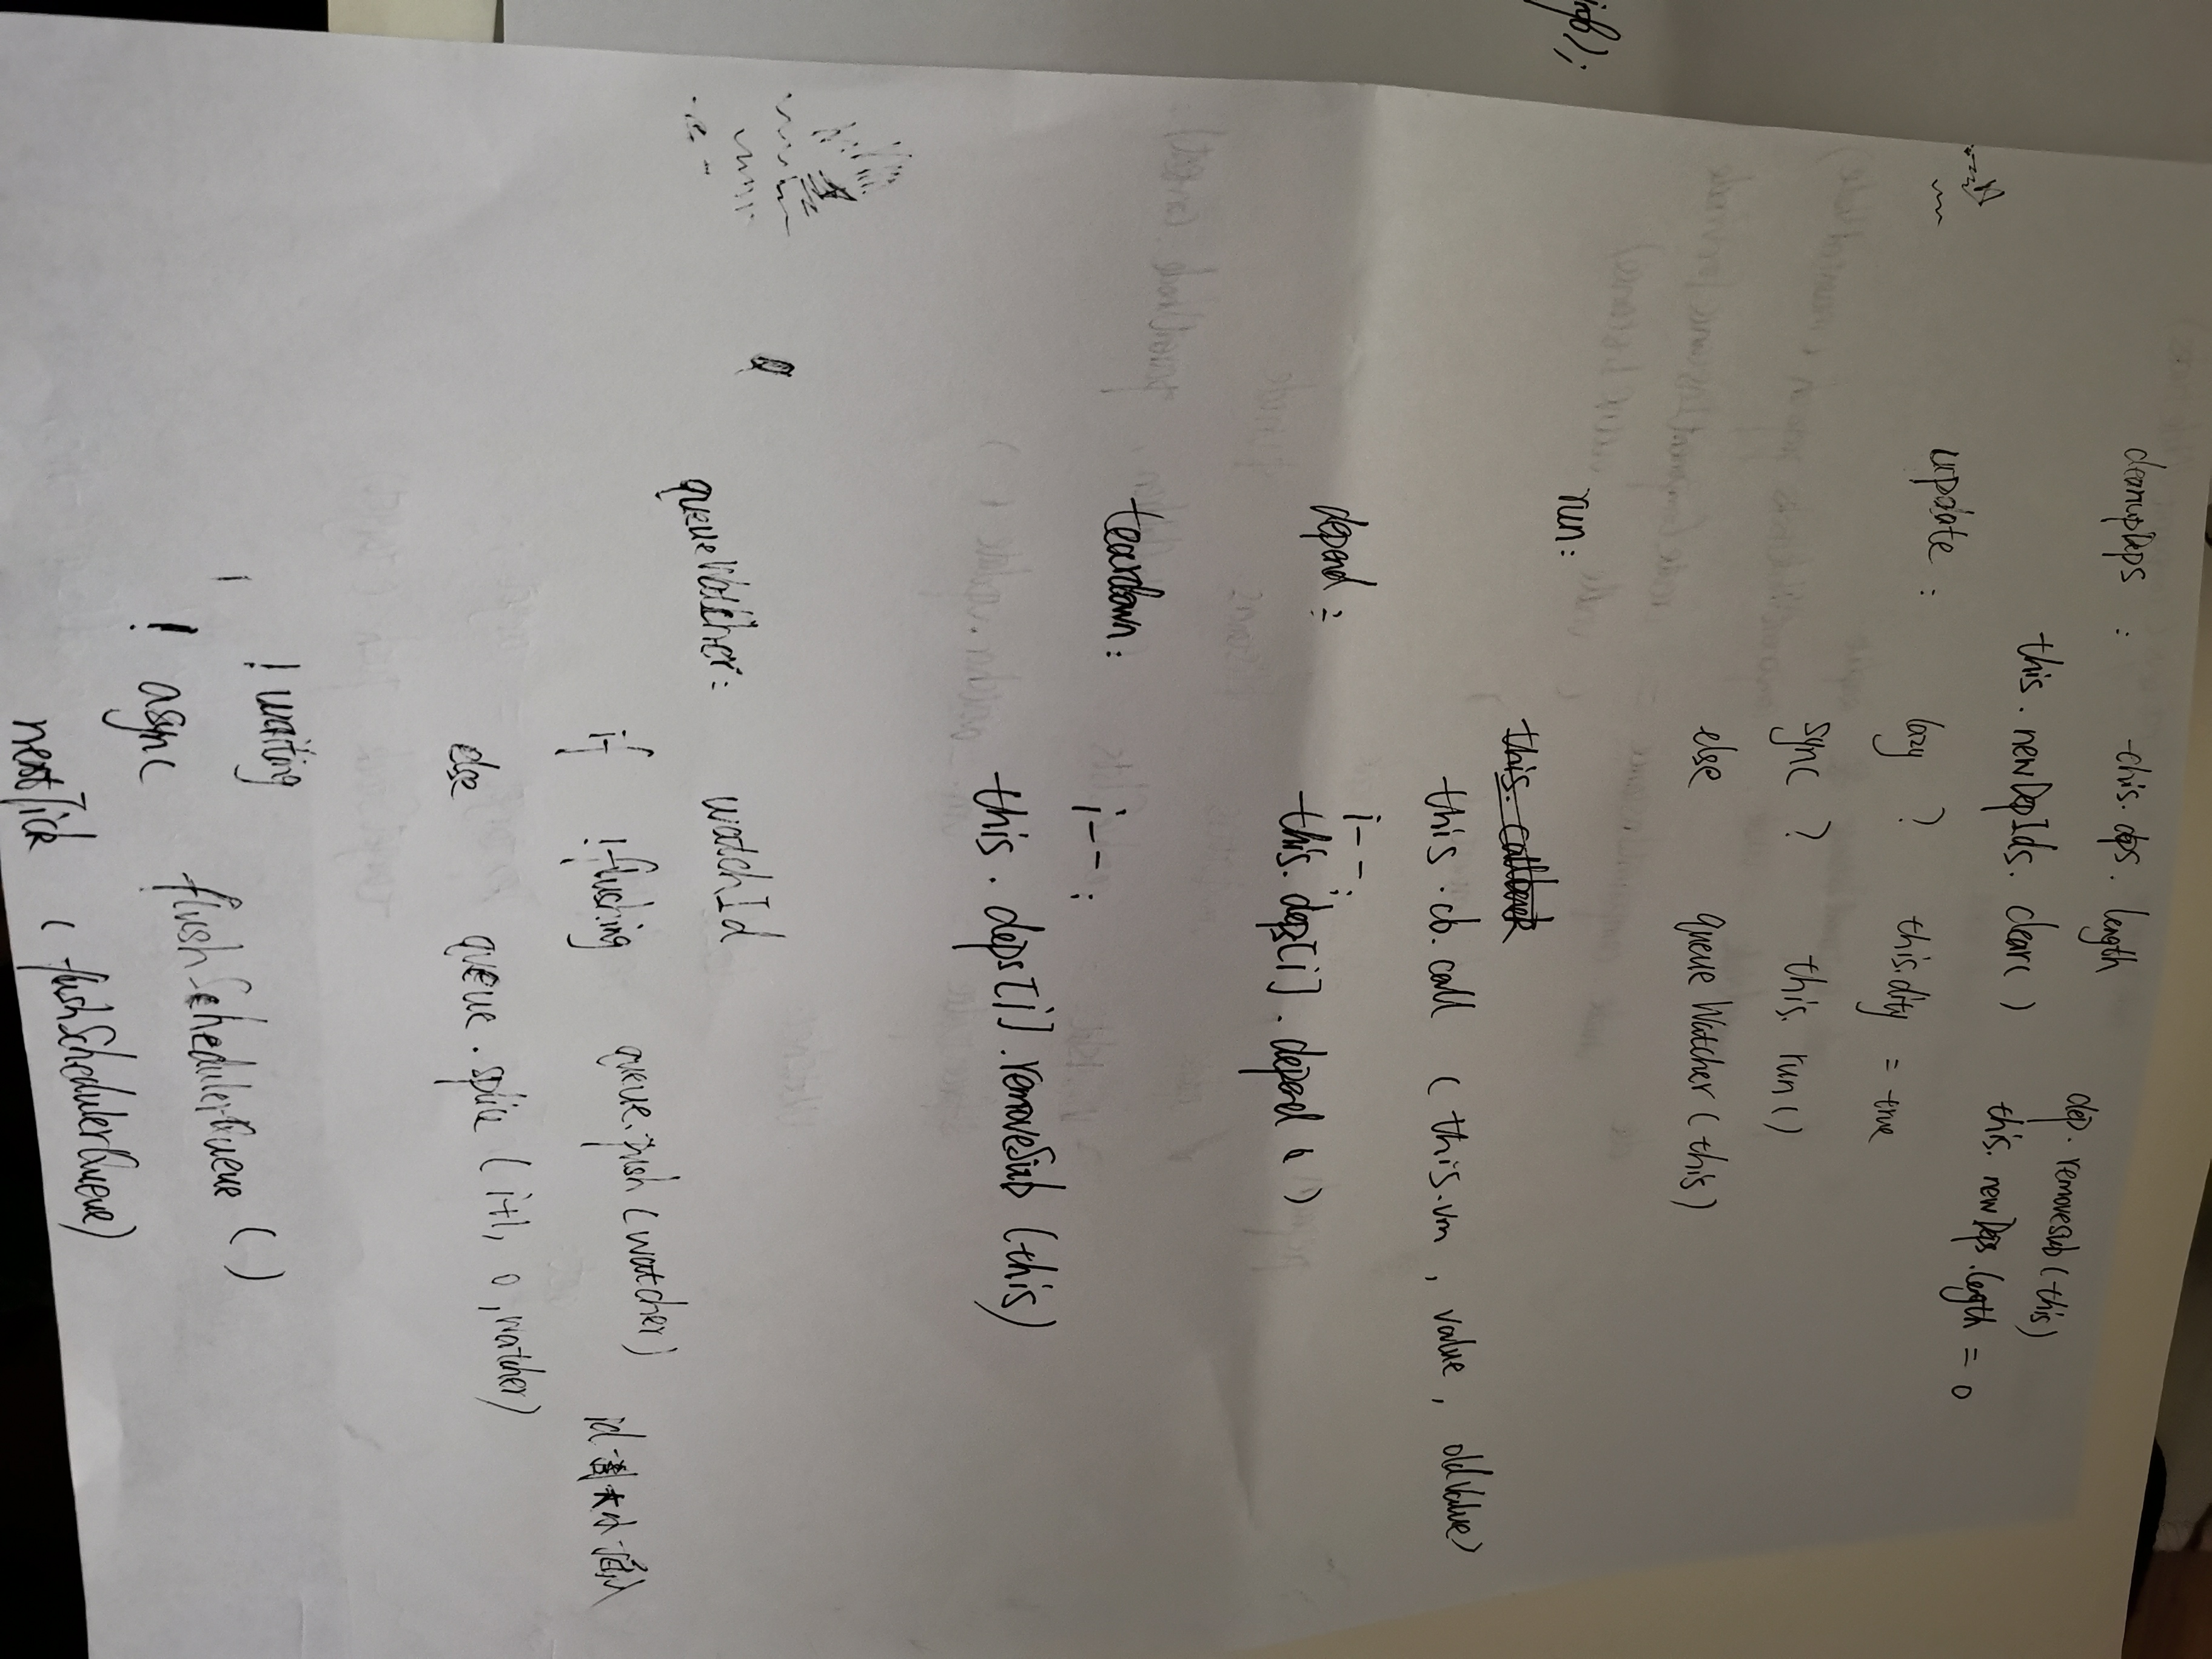 cleanupDeps : this.deps.length
dep.removeSub(this)
this.newDepIds.clear() this.newDeps.length = 0
update : lazy ? this.dirty = true
sync ? this.run()
else queueWatcher(this)
run:
this.cb.call (this.vm, value, oldValue)
depend : i--;
this.deps[i].depend()
teardown: i--;
this.deps[i].removeSub(this)
queueWatcher: watchId
if !flushing queue.push(watcher)
else queue.splice (i+1, 0, watcher)
! waiting
! async flushSchedulerQueue()
nextTick (flushSchedulerQueue)